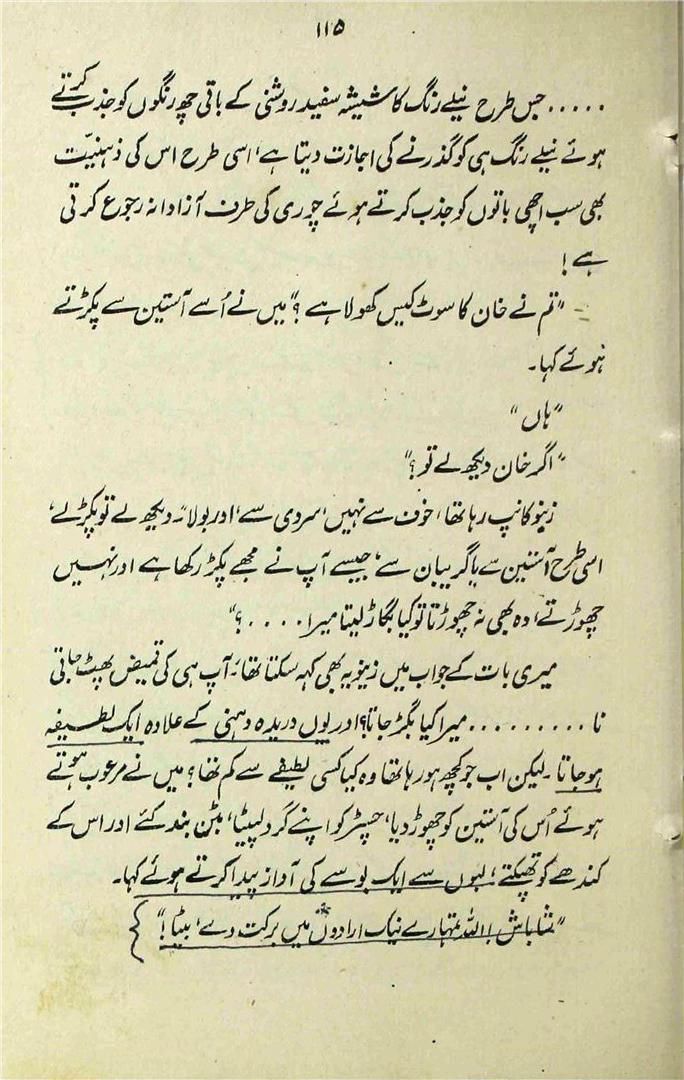 ۱۱۵
..... جس طرح نیلے رنگ کا شیشہ سفید روشنی کے باقی چھ رنگوں کو جذب کرتے
ہوئے نیلے رنگ ہی کو گذرنے کی اجازت دیتا ہے، اسی طرح اس کی ذہنیّت
بھی سب اچھی باتوں کو جذب کرتے ہوئے چوری کی طرف آزادانہ رجوع کرتی
ہے!
"تم نے خان کا سوٹ کیس کھولا ہے؟" میں نے اُسے آستین سے پکڑتے
ہوئے کہا۔
"ہاں"
"اگر خان دیکھ لے تو؟"
زینو کانپ رہا تھا، خوف سے نہیں، سردی سے، اور بولا۔ "دیکھ لے تو پکڑلے،
اسی طرح آستین سے یا گریبان سے، جیسے آپ نے مجھے پکڑ رکھا ہے اور نہیں
چھوڑتے، وہ بھی نہ چھوڑتا تو کیا بگاڑ لیتا میرا ....؟"
میری بات کے جواب میں زینو یہ بھی کہہ سکتا تھا، آپ ہی کی قمیض پھٹ جاتی
نا ......... میرا کیا بگڑ جاتا؟ اور یوں دریدہ دہنی کے علاوہ ایک لطیفہ
ہوجاتا۔ لیکن اب جو کچھ ہو رہا تھا وہ کیا کسی لطیفے سے کم تھا؟ میں نے مرعوب ہوتے
ہوئے اُس کی آستین کو چھوڑ دیا، چسٹر کو اپنے گرد لپیٹا، بٹن بند کئے اور اس کے
کندھے کو تھپکتے، لبوں سے ایک بوسے کی آواز پیدا کرتے ہوئے کہا۔
"شاباش! اللہ تمہارے نیک ارادوں میں برکت دے، بیٹا!"